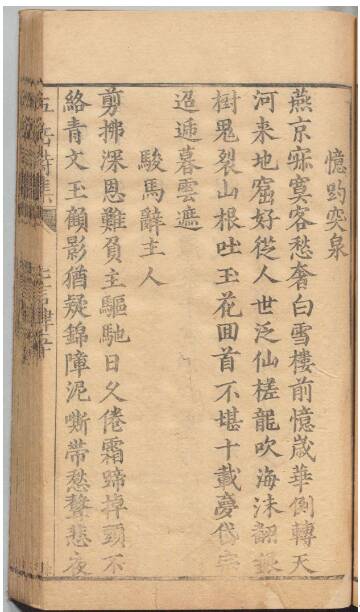 憶趵突泉
燕京寂寞客愁奢白雪樓前憶歲華倒轉天
河来地窟好從人世泛仙槎龍吹海沫翻銀
樹鬼裂山根吐玉花囬首不堪十載夢岱宗
迢遞暮雲遮
駿馬辭主人
剪拂深恩難負主驅馳日久倦霜蹄掉頭不
絡青文玉顧影猶疑錦障泥嘶帶愁聲悲夜
詩集
七言律